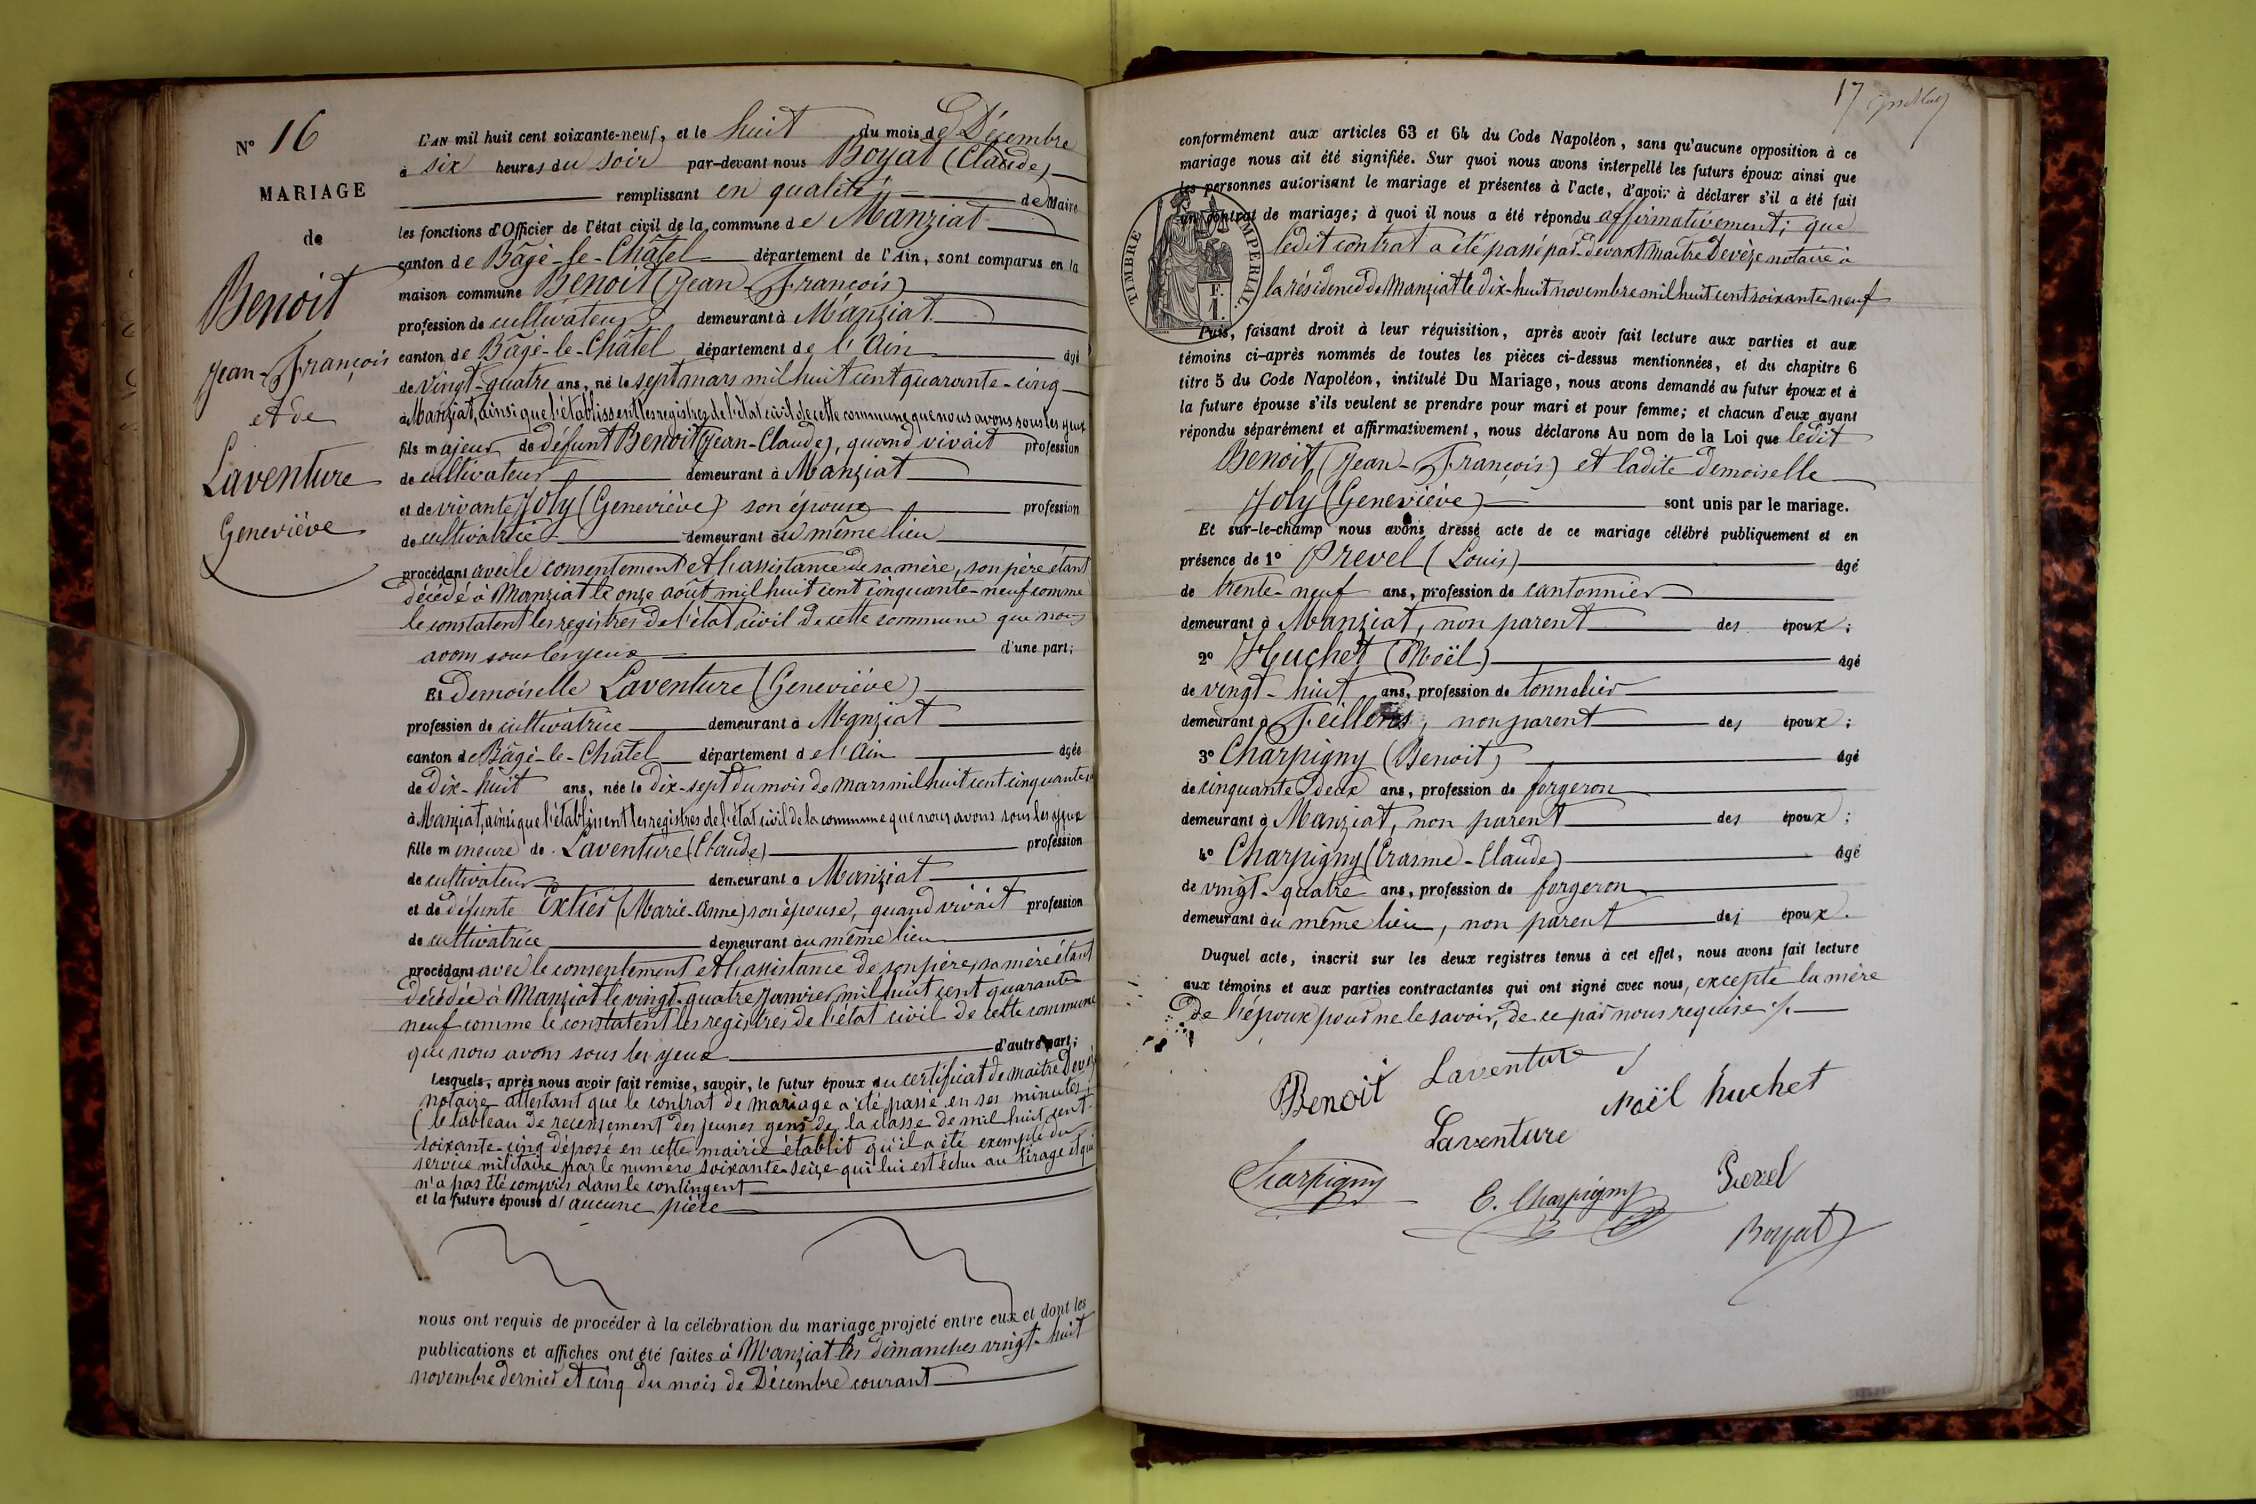 N° 16
MARIAGE
de
Benoit
Jean-François
et de
Laventure
Geneviève
L'AN mil huit cent soixante-neuf, et le huit du mois de Décembre
à six heures du soir par-devant nous Boyat (Claude)
remplissant en qualité de Maire
les fonctions d'Officier de l'état civil de la commune de Manziat
canton de Bâgé-le-Châtel département de l'Ain, sont comparus en la
maison commune Benoit (Jean-François)
profession de cultivateur demeurant à Manziat
canton de Bâgé-le-Châtel département de l'Ain âgé
de vingt-quatre ans, né le sept mars mil huit cent quarante-cinq
à Manziat, ainsi que l'établissent les registres de l'état civil de cette commune que nous avons sous les yeux
fils majeur de défunt Benoit (Jean-Claude), quand vivait profession
de cultivateur demeurant à Manziat
et de vivante Joly (Geneviève) son épouse profession
de cultivatrice demeurant au même lieu
procédant avec le consentement et l'assistance de sa mère, son père étant
décédé à Manziat le onze août mil huit cent cinquante-neuf comme
le constatent les registres de l'état civil de cette commune que nous
avons sous les yeux d'une part;
Et Demoiselle Laventure (Geneviève)
profession de cultivatrice demeurant à Manziat
canton de Bâgé-le-Châtel département de l'Ain âgée
de dix-huit ans, née le dix-sept du mois de mars mil huit cent cinquante
à Manziat, ainsi que l'établissent les registres de l'état civil de la commune que nous avons sous les yeux
fille mineure de Laventure (Claude) profession
de cultivateur demeurant à Manziat
et de défunte Extier (Marie-Anne) son épouse, quand vivait profession
de cultivatrice demeurant au même lieu
procédant avec le consentement et l'assistance de son père, sa mère étant
décédée à Manziat le vingt-quatre Janvier mil huit cent quarante
neuf comme le constatent les registres de l'état civil de cette commune
que nous avons sous les yeux d'autre part;
Lesquels, après nous avoir fait remise, savoir, le futur époux du certificat de maître Devèze
notaire attestant que le contrat de mariage a été passé en ses minutes,
(le tableau de recensement des jeunes gens de la classe de mil huit cent
soixante-cinq déposé en cette mairie établit qu'il a été exempté du
service militaire par le numéro soixante-seize qui lui est échu au tirage et qui
n'a pas été compris dans le contingent
et la future épouse d'aucune pièce
nous ont requis de procéder à la célébration du mariage projeté entre eux et dont les
publications et affiches ont été faites à Manziat les dimanches vingt-huit
novembre dernier et cinq du mois de Décembre courant
17
conformément aux articles 63 et 64 du Code Napoléon, sans qu'aucune opposition à ce
mariage nous ait été signifiée. Sur quoi nous avons interpellé les futurs époux ainsi que
les personnes autorisant le mariage et présentes à l'acte, d'avoir à déclarer s'il a été fait
un contrat de mariage; à quoi il nous a été répondu affirmativement; que
ledit contrat a été passé par-devant maître Devèze notaire à
la résidence de Manziat le dix-huit novembre mil huit cent soixante-neuf
TIMBRE IMPERIAL
1 F.
Puis, faisant droit à leur réquisition, après avoir fait lecture aux parties et aux
témoins ci-après nommés de toutes les pièces ci-dessus mentionnées, et du chapitre 6
titre 5 du Code Napoléon, intitulé Du Mariage, nous avons demandé au futur époux et à
la future épouse s'ils veulent se prendre pour mari et pour femme; et chacun d'eux ayant
répondu séparément et affirmativement, nous déclarons Au nom de la Loi que ledit
Benoit, (Jean-François) et ladite demoiselle
Joly (Geneviève) sont unis par le mariage.
Et sur-le-champ nous avons dressé acte de ce mariage célébré publiquement et en
présence de 1° Prevel (Louis) âgé
de trente-neuf ans, profession de cantonnier
demeurant à Manziat, non parent des époux;
2° Huchet (Noël) âgé
de vingt-huit ans, profession de tonnelier
demeurant à Feillens, non parent des époux;
3° Charpigny (Benoit) âgé
de cinquante deux ans, profession de forgeron
demeurant à Manziat, non parent des époux;
4° Charpigny (Erasme-Claude) âgé
de vingt-quatre ans, profession de forgeron
demeurant au même lieu, non parent des époux.
Duquel acte, inscrit sur les deux registres tenus à cet effet, nous avons fait lecture
aux témoins et aux parties contractantes qui ont signé avec nous, excepté la mère
de l'époux pour ne le savoir, de ce par nous requise
Benoit Laventure
Noël huchet
Laventure
Charpigny
E. Charpigny
Prevel
Boyat